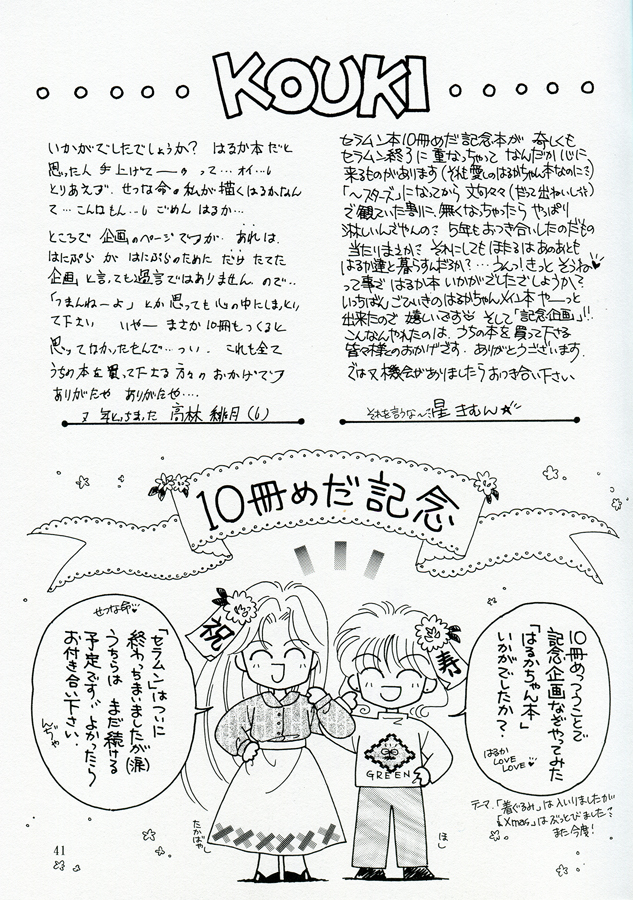 KOUKI
いかがでしたでしょうか? はるか本だと
思った人 手上げてーの って…オイ…!
とりあえず、せつな命の私が描くはるかなんて
…こんなもん…! ごめん はるか…
ところで企画のページですが、あれは、
はにぷら が はにぷらのために だけ たてた
企画と言っても過言ではありません ので…
「つまんねーよ」とか思っても心の中にしまっといて
下さい いやー まさか10冊もつくると
思ってなかったもんで…つい… これも全て
うちの本を買って下さる方々のおかげです
ありがたや ありがたや…
高林 緋月(6)
セラムン本10冊めだ記念本が 奇しくも
セラムン終了に重なっちゃって なんだか心に
来るものがあります(それも愛しのはるかちゃん本なのに…)
「〜スターズ」になってから 文句々々(だって出ねいし…)
で観ていた割に、無くなっちゃったら やっぱり
淋しいんでやんの… 5年もおつき合いしたのだもの
当たりまえか… それにしてもほたるはあのあとも
はるか達と暮らすんだろか?…うんっ!きっと そうね♡
って事で はるか本 いかがでしたでしょうか?
いっちばん ごひいきのはるかちゃんメイン本 やーっと
出来たので 嬉しいです そして「記念企画」!!
こんなんやれたのは、うちの本を買って下さる
皆々様とのおかげです. ありがとうございます.
では又機会がありましたらおつき合い下さい
それを言うな〜 星 きむん☆
10冊めだ記念
祝
寿
10冊めっつうことで
記念企画などやってみた
「はるかちゃん本」
いかがでしたか?
はるか
LOVE
LOVE♡
せつな命♡
「セラムン」はついに
終わっちまいましたが(涙)
うちらは まだ続ける
予定です。よかったら
お付き合い下さい。
GREEN
たかばやし
ほし
テーマ.「着ぐるみ」は入いりましたが
「Xmas」はぶっとびました
また今度!
41